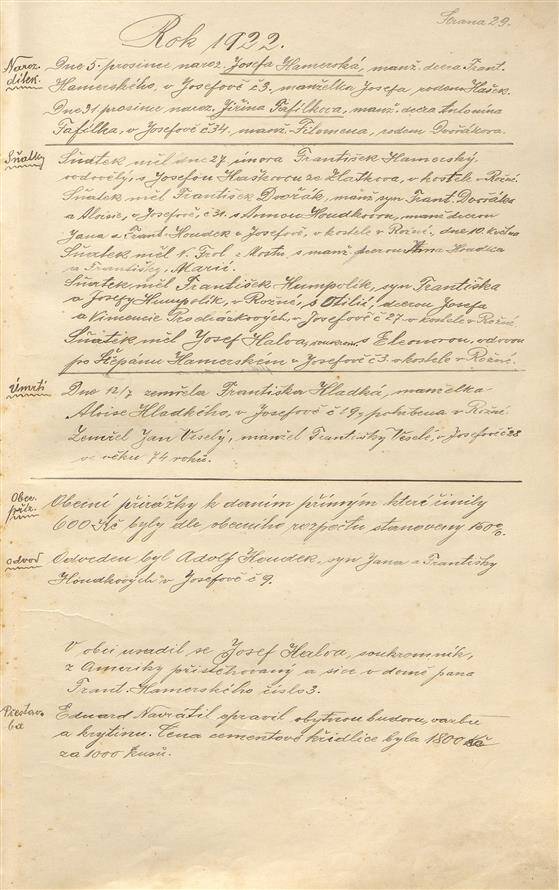 Strana 29.
Rok 1922.
Naroz.
ditek.
Dne 5. prosince naroz. Josefa Hamerská, manž. dcera Frant.
Hamerského, v Josefově č.3. manželka Josefa, rodem Hašek.
Dne 31 prosince naroz. Jiřina Fafílkova, manž. dcera Antonína
Fafílka, v Josefově č 34, manž. Filomena, rodem Dvořákova.
Sňatky
Sňatek měl dne 27 února František Hamerský,
vdovělý, s Josefou Haškovou ze Zlatkova, v kostele v Rožné.
Sňatek měl František Dvořák, manž syn Frant. Dvořáka
a Aloisie, v Josefově, č 31. s Annou Houdkovou, manž dcerou
Jana a Frant. Houdek v Josefově, v kostele v Rožné, dne 10. května
Sňatek měl 1. Frol. z Mostu, s manž. dcerou Jana Houdka
a Františky, Marií.
Sňatek měl František Humpolík, syn Františka
a Josefy Humpolík, v Rožné, s Otilií, dcerou Josefa
a Vincencie Procházkových, v Josefově č 27. v kostele v Rožné
Sňatek měl Josef Halva, soukrom. s Eleonorou, vdovou
po Štěpánu Hamerském v Josefově č 3. v kostele v Rožné.
Úmrtí
Dne 12/7 zemřela Františka Hladká, manželka
Aloise Hladkého, v Josefově č 19, pohřbena v Rožné.
Zemřel Jan Veselý, manžel Františky Veselé, v Josefově č 28
ve věku 74 roků.
Obec.
přir.
Obecní přirážky k daním přímým které činily
600 Kč byly dle obecního rozpočtu stanoveny 150%.
odvod
Odveden byl Adolf Houdek, syn Jana a Františky
Houdkových v Josefově č 9.
V obci usadil se Josef Halva, soukromník,
z Ameriky přistěhovaný a sice v domě pana
Frant. Hamerského číslo 3.
Přestav-
ba
Eduard Navrátil spravil obytnou budovu, vazbu
a krytinu. Cena cementové křidlice byla 1800 Kč
za 1000 kusů.